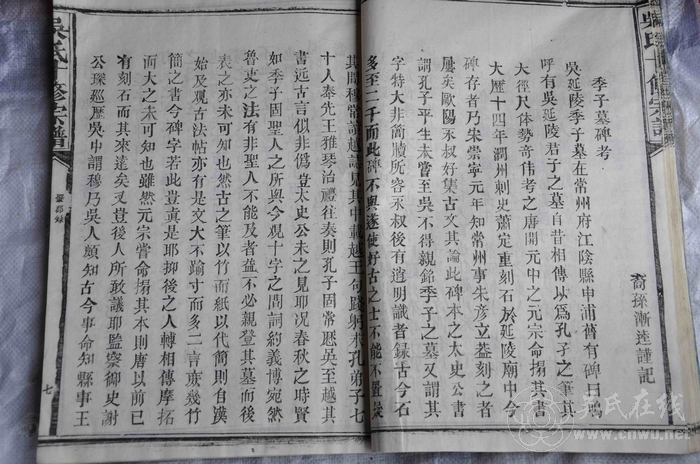 季子墓碑考
裔孫漸逵謹記
吳延陵季子墓在常州府江陰縣申浦舊有碑曰嗚
呼有吳延陵君子之墓自昔相傳以為孔子之筆其
大徑尺体勢奇偉考之唐開元中之元宗命搨其書
大歷十四年潤州刺史蕭定重刻石於延陵廟中今
碑存者乃朱崇寧元年知常州事朱彥立葢刻之者
屢矣歐陽永叔好集古文其論此碑本之太史公書
謂孔子平生未嘗至吳不得親銘季子之墓又謂其
字特大非簡牘所容永叔後有道明識者録古今石
多至二千而此碑不與遂使好古之士不能不置疑
其間穆常讀越
見其中載越王句踐躬求孔弟子七
十人奉先王雅琴治禮往奏則孔子固常厯吳至越其
書远古言似非僞豈太史公未之見耶况春秋之時賢
如季子固聖人之所與今觀十字之間詞約義博宛然
魯史之法有非聖人不能及者葢不必親登其墓而後
表之亦未可知也然古之筆以竹而紙以代簡則自漢
始及观古法帖亦有是文大不踰寸而多二言庻幾竹
簡之書今碑字若此豈真是耶抑後之人轉相傳摩拓
而大之未可知也雖然元宗嘗命搨其本則唐以前已
有刻石而其來遠矣又豈後人所敢議耶監察御史謝
公琛廵歷吳中謂穆乃吳人頗知古今事命知縣事王
吳氏十修宗譜
七
吳氏十修宗譜
吴氏在线
www.cnwu.net